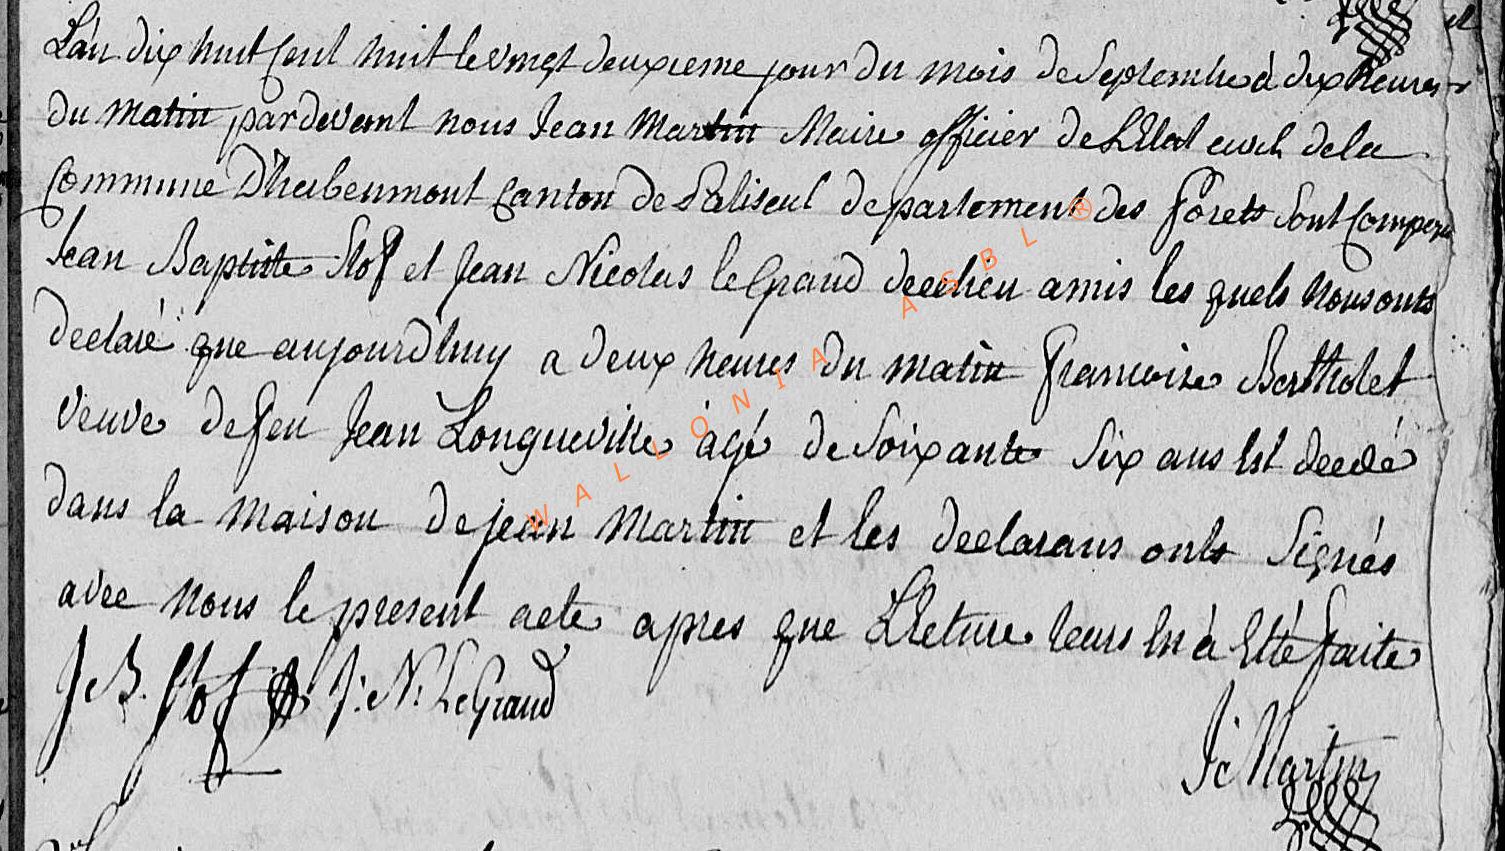 L'an dix huit Cent huit le vingt deuxieme jour du mois de Septembre à dix heures
du matin pardevant nous Jean Martin Maire officier de L'Etat civil de la
Commune D'herbeumont Canton de Paliseul departement des forets sont Comparu
Jean Baptiste Stof et Jean Nicolas le Grand decelieu amis les quels nous onts
declaré que aujourd'huy a deux heures du matin francoise Bertholet
veuve de feu Jean Longueville àgé de soixante six ans Est decedé
dans la maison de jean Martin et les declarans onts Signés
avec nous le present acte apres que LLecture leurs En à Etté faite
J B. Stof J: N. LeGrand
J Martin
WALLONIA ASBL ®